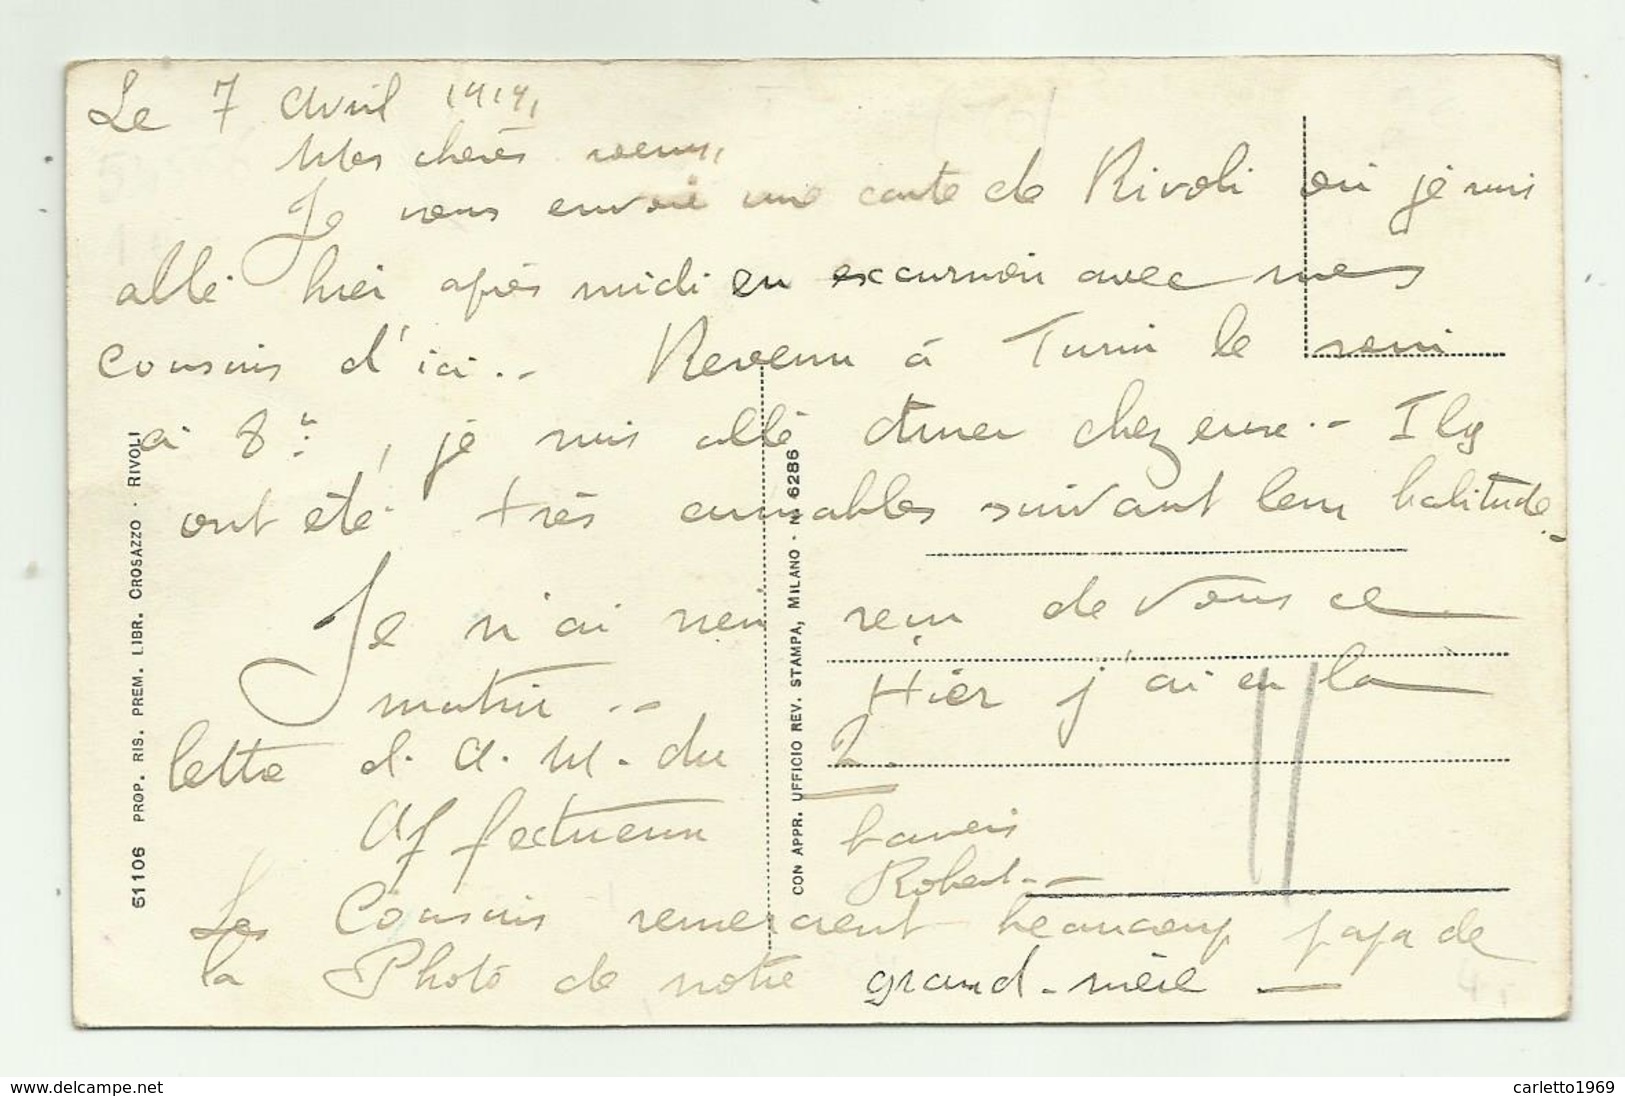 Le 7 avril 1919,
Mes chères soeurs,
Je vous envoie une carte de Rivoli où je suis
allé hier après midi en excursion avec mes
cousins d'ici.. Revenu à Turin le soir
à 8 h, je suis allé diner chez eux.- Ils
ont été très aimables suivant leur habitude.-
Je n'ai rien reçu de vous ce
matin.. Hier j'ai eu la
lettre d. A. M. du 2.
Affectueux baisers
Robert.-
Les Cousins remercient beaucoup papa de
la Photo de notre grand-mère
61106 PROP. RIS. PREM. LIBR. CROSAZZO - RIVOLI
CON APPR. UFFICIO REV. STAMPA, MILANO - N. 6286
www.delcampe.net
carletto1969